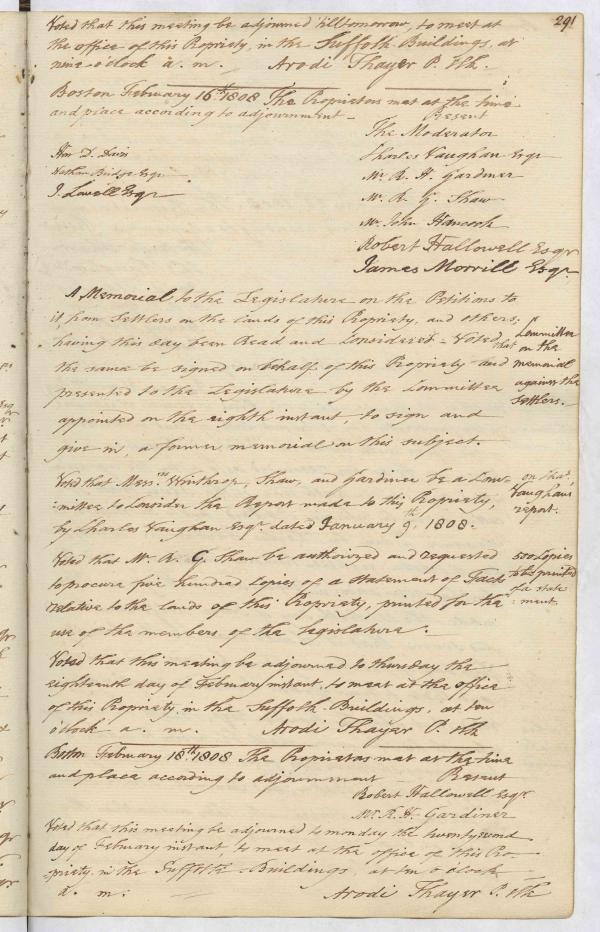 291
Voted that this meeting be adjourned till tomorrow, to meet at
the office of this Propriety, in the Suffolk Buildings, at
nine o'clock a. m. Arodi Thayer P. Clk.
Boston February 16th 1808 The Proprietors met at the time
and place according to adjournment -
Present
The Moderator
Charles Vaughan Esqr
Mr. R. H. Gardiner
Mr. R. G. Shaw
Mr. John Hancock
Robert Hallowell Esqr
James Morrill Esqr
Hon D. Davis
Nathan Bridge Esqr
J. Lowell Esqr
A Memorial to the Legislature on the Petitions to
it, from Settlers on the lands of this Propriety, and others,
having this day been Read and Considered - Voted that
the same be signed on behalf of this Propriety and
presented to the Legislature by the Committee
appointed on the eighth instant, to sign and
give in, a former memorial on this subject.
Committee
on the
memorial
against the
Settlers.
Voted that Messrs Winthrop, Shaw, and Gardiner be a Com-
:mittee to Consider the Report made to this Propriety,
by Charles Vaughan Esqr. dated January 9th, 1808.
on Chas
Vaughan's
report.
Voted that Mr. R. G. Shaw be authorized and requested
to procure five hundred Copies of a Statement of Facts
relative to the lands of this Propriety, printed for the
use of the members of the legislature.
500 Copies
to be printed
of a state
:ment
Voted that this meeting be adjourned to thursday the
eighteenth day of February instant, to meet at the office
of this Propriety, in the Suffolk Buildings, at ten
o'clock a. m. Arodi Thayer P. Clk
Boston February 18th 1808 The Proprietors met at the time
and place according to adjournment - Present
Robert Hallowell Esqr.
Mr. R. H. Gardiner
Voted that this meeting be adjourned to monday the twenty second
day of February instant to meet at the office of this Pro-
-priety, in the Suffolk Buildings, at ten o'clock
a. m. Arodi Thayer P. Clk